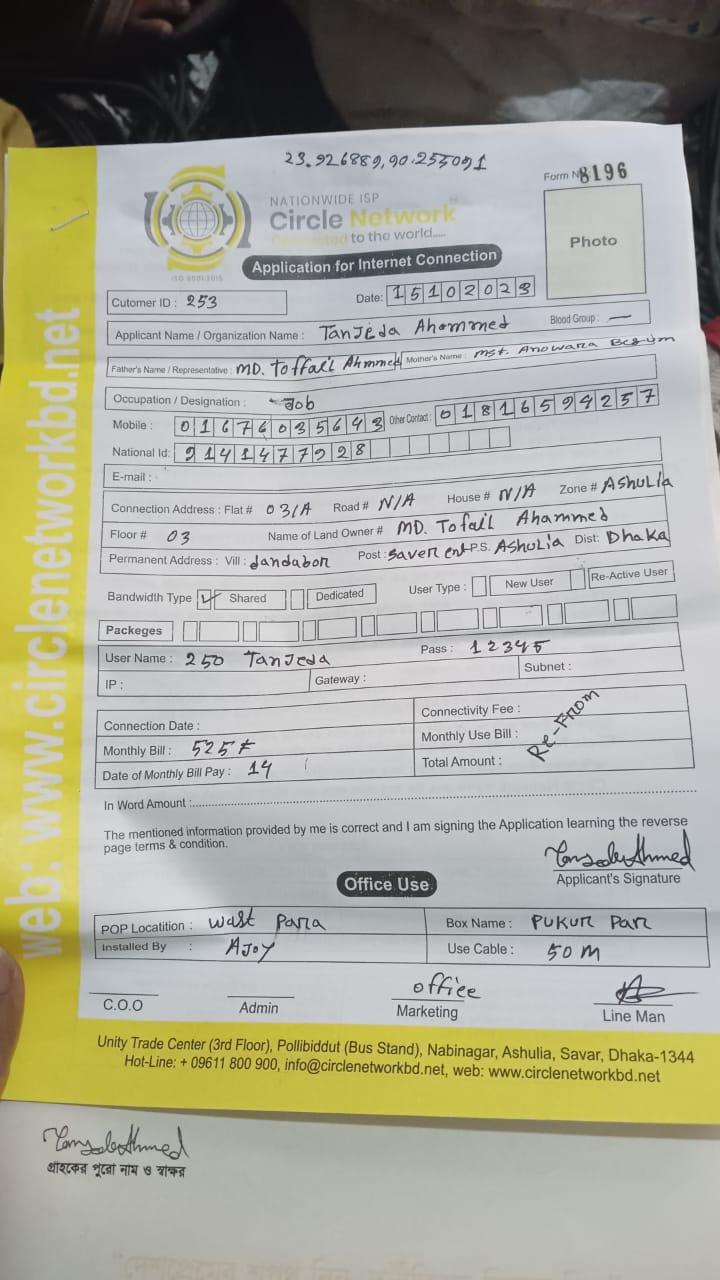 23.926889,90.255091
Form No 8196
NATIONWIDE ISP
Circle Network
Connected to the world.....
ISO 9001:2015
Photo
Application for Internet Connection
Cutomer ID : 253
Date: 15102023
Applicant Name / Organization Name : Tanjeda Ahommed Blood Group : —
Father's Name / Representative : MD. Toffail Ahmmed Mother's Name : Mst. Anowara Begum
Occupation / Designation : Job
Mobile : 01676035643 Other Contact : 01816594257
National Id: 9141477928
E-mail :
Connection Address : Flat # 03/A Road # N/A House # N/A Zone # AShulia
Floor # 03 Name of Land Owner # MD. Tofail Ahammed
Permanent Address : Vill : dandabor Post : Saver ent P.S. AShulia Dist: Dhaka
Bandwidth Type Shared Dedicated User Type : New User Re-Active User
Packeges
User Name : 250 Tanjeda Pass : 12345
IP : Gateway : Subnet :
Connection Date : Connectivity Fee :
Monthly Bill : 525 Monthly Use Bill :
Date of Monthly Bill Pay : 14 Total Amount :
Re-From
In Word Amount :
The mentioned information provided by me is correct and I am signing the Application learning the reverse
page terms & condition.
Applicant's Signature
Office Use
POP Locatition : Wast Para Box Name : Pukur Par
Installed By : AJoy Use Cable : 50 M
office
C.O.O Admin Marketing Line Man
Unity Trade Center (3rd Floor), Pollibiddut (Bus Stand), Nabinagar, Ashulia, Savar, Dhaka-1344
Hot-Line: + 09611 800 900, info@circlenetworkbd.net, web: www.circlenetworkbd.net
web: www.circlenetworkbd.net
গ্রাহকের পুরো নাম ও স্বাক্ষর